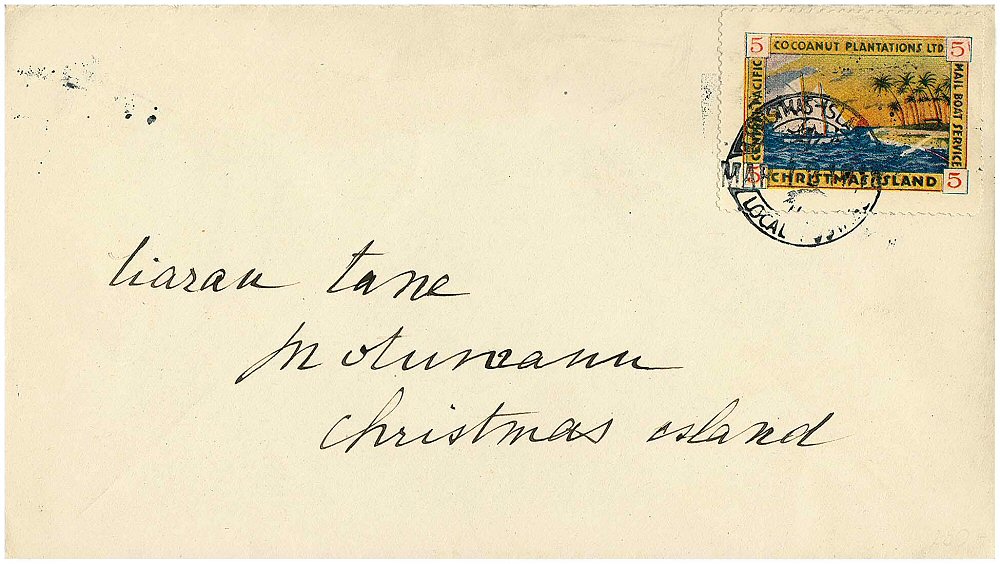 5 COCOANUT PLANTATIONS LTD 5
CENTRAL PACIFIC
MAIL BOAT SERVICE
5 CHRISTMAS ISLAND 5
CHRISTMAS ISLAND
MAR
LOCAL
tane
Christmas island